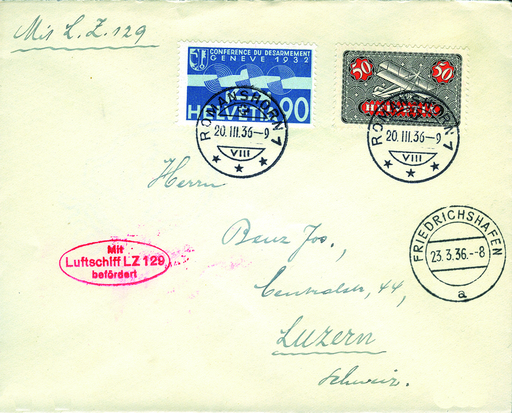 Mit L. Z. 129
CONFERENCE DU DESARMEMENT
GENEVE 1932
HELVETIA 90
50 50
HELVETIA
ROMANSHORN 1
20.III.36-9
VIII
ROMANSHORN 1
20.III.36-9
VIII
Herrn
Benz Jos.,
Centralstr, 44,
Luzern
Schweiz.
Mit
Luftschiff LZ 129
befördert
FRIEDRICHSHAFEN
23.3.36.--8
a